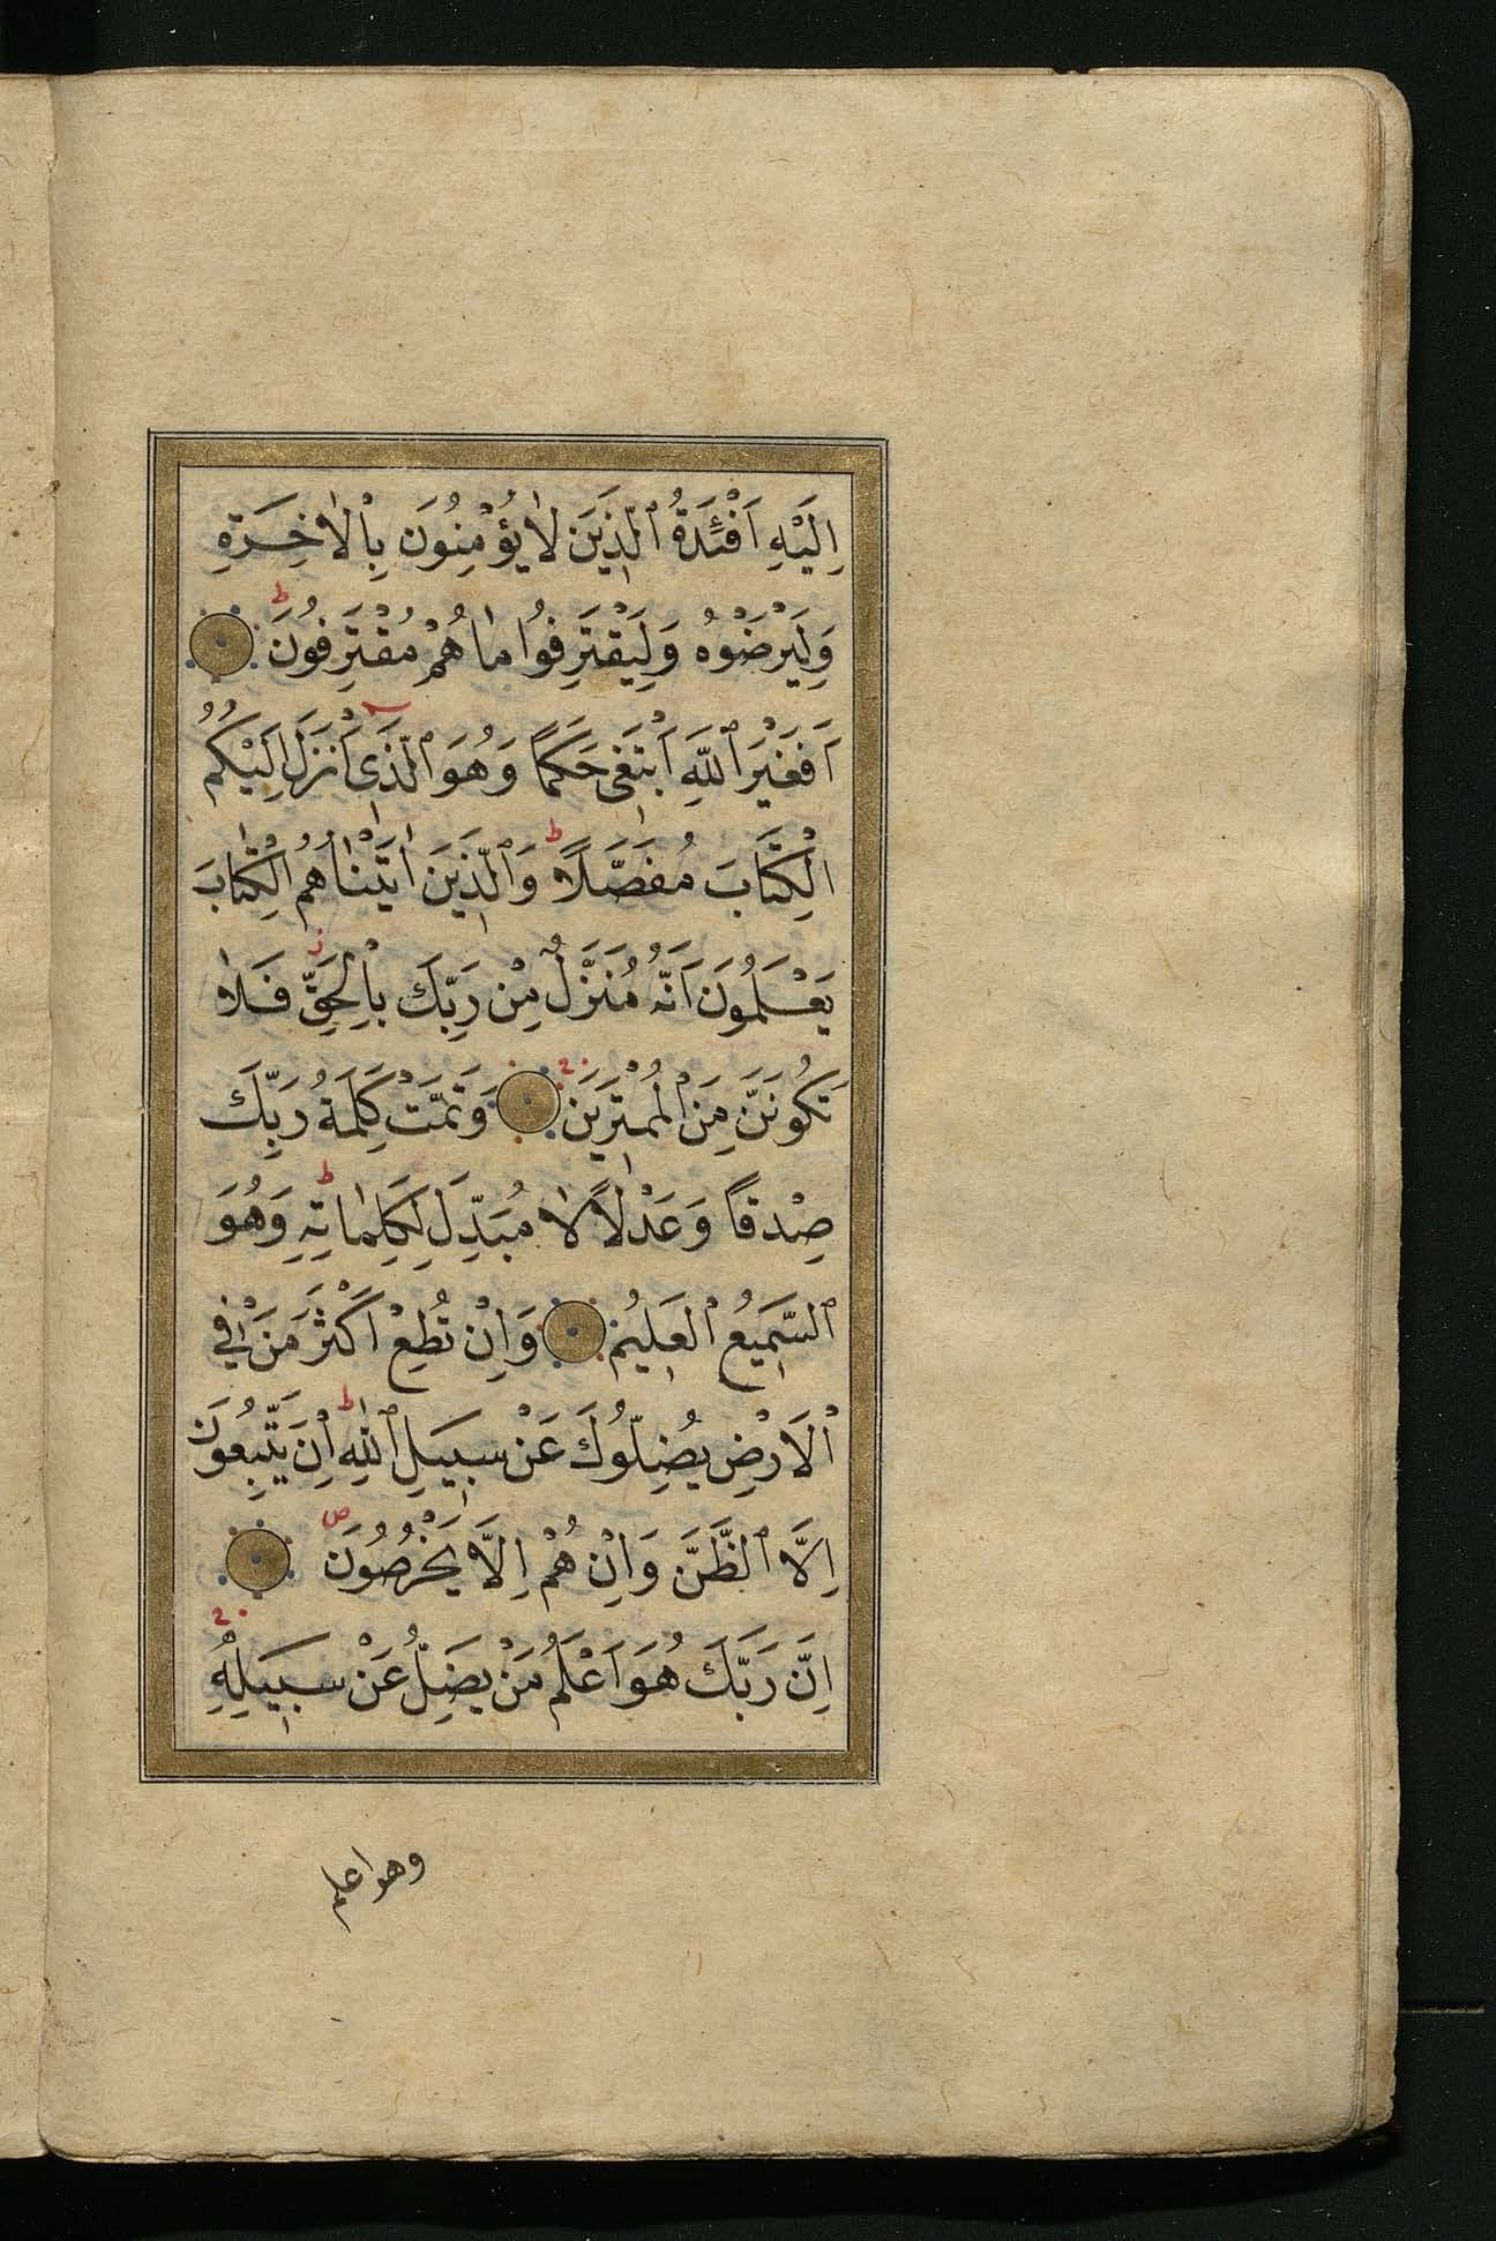 اِلَيْهِ اَفْئِدَةُ ٱلَّذِينَ لَا يُؤْمِنُونَ بِالْاٰخِرَةِ
وَلِيَرْضَوْهُ وَلِيَقْتَرِفُوا مَا هُمْ مُقْتَرِفُونَ ط
اَفَغَيْرَ ٱللّٰهِ اَبْتَغِى حَكَمًا وَهُوَ ٱلَّذِىٓ اَنْزَلَ اِلَيْكُمُ
الْكِتَابَ مُفَصَّلًا ط وَٱلَّذِينَ اٰتَيْنَاهُمُ الْكِتَابَ
يَعْلَمُونَ اَنَّهُ مُنَزَّلٌ مِنْ رَبِّكَ بِالْحَقِّ فَلَا
تَكُونَنَّ مِنَ الْمُمْتَرِينَ وَتَمَّتْ كَلِمَةُ رَبِّكَ
صِدْقًا وَعَدْلًا لَا مُبَدِّلَ لِكَلِمَاتِهِ ط وَهُوَ
ٱلسَّمِيعُ الْعَلِيمُ وَاِنْ تُطِعْ اَكْثَرَ مَنْ فِي
الْاَرْضِ يُضِلُّوكَ عَنْ سَبِيلِ ٱللّٰهِ ط اِنْ يَتَّبِعُونَ
اِلَّا ٱلظَّنَّ وَاِنْ هُمْ اِلَّا يَخْرُصُونَ ص
اِنَّ رَبَّكَ هُوَ اَعْلَمُ مَنْ يَضِلُّ عَنْ سَبِيلِهِ
وهو اعلم